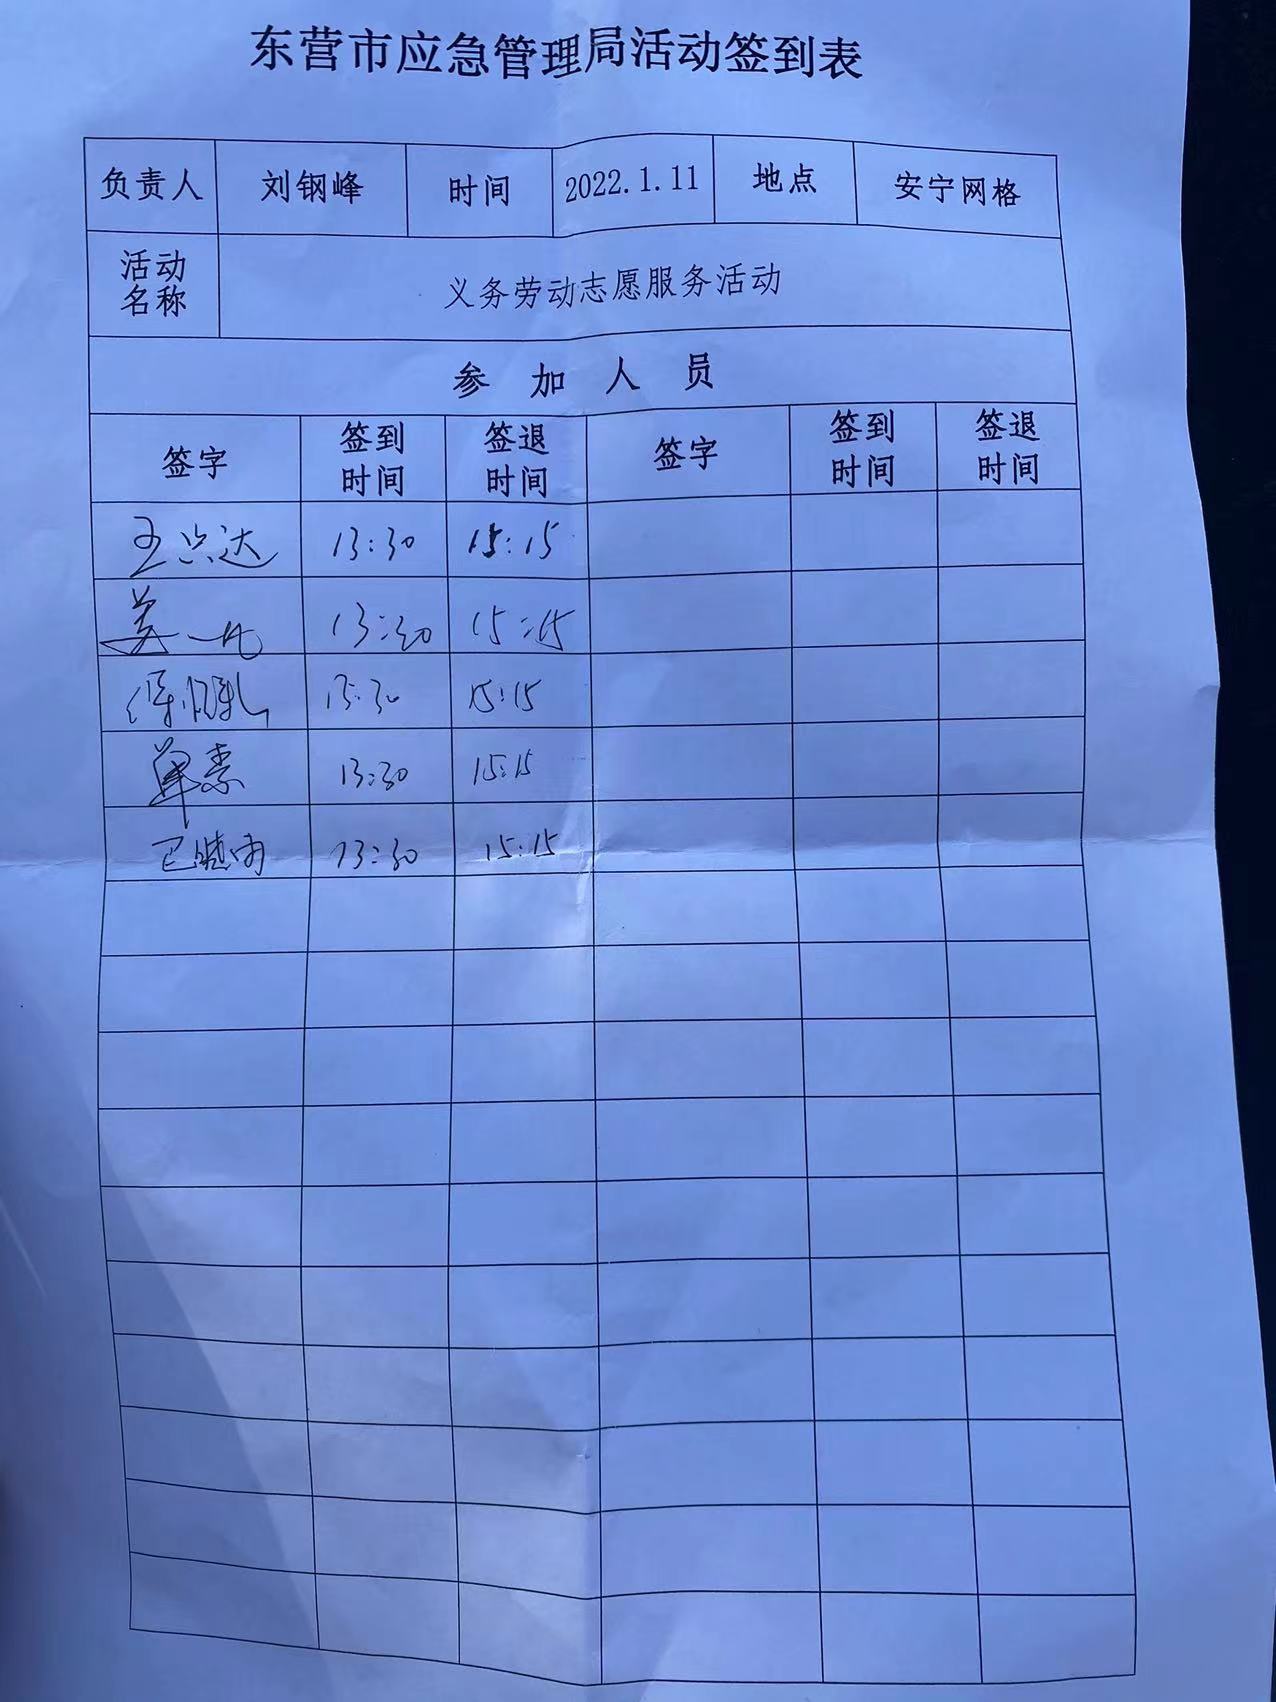 东营市应急管理局活动签到表
负责人 刘钢峰 时间 2022.1.11 地点 安宁网格
活动名称 义务劳动志愿服务活动
参加人员
签字 签到时间 签退时间 签字 签到时间 签退时间
王兴达 13:30 15:15
13:30 15:15
13:30 15:15
单素 13:30 15:15
13:30 15:15